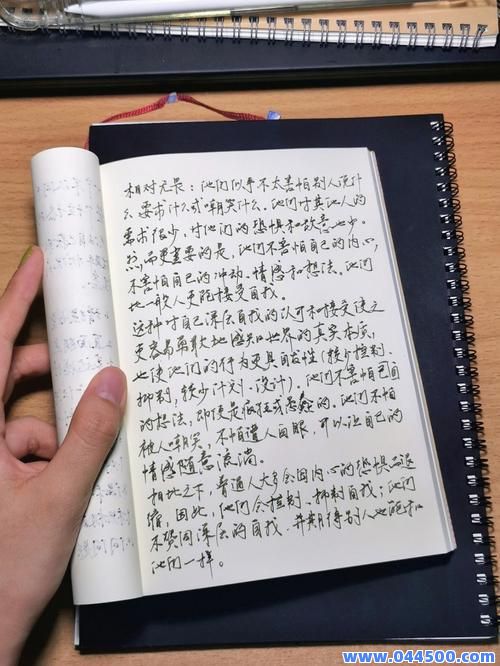 相对无畏：他们似乎不太害怕别人说什
么、要求什么或嘲笑什么。他们对其他人的
需求很少，对他们的恐惧和敌意也少。
然而更重要的是，他们不害怕自己的内心，
不害怕自己的冲动、情感和想法。他们
比一般人更能接受自我。
这种对自己深层自我的认可和接受使之
更容易勇敢地感知世界的真实本质，
也使他们的行为更具自发性（较少控制、
抑制，较少计划、设计）。他们不害怕自己
的想法，即使是疯狂或愚蠢的。他们不怕
被人嘲笑，不怕遭人白眼，可以让自己的
情感随意流淌。
相比之下，普通人大多会因内心的恐惧而退
缩，因此，他们会控制、抑制自我；他们
不赞同深层的自我，并期待别人也能和
他们一样。
www.044500.com